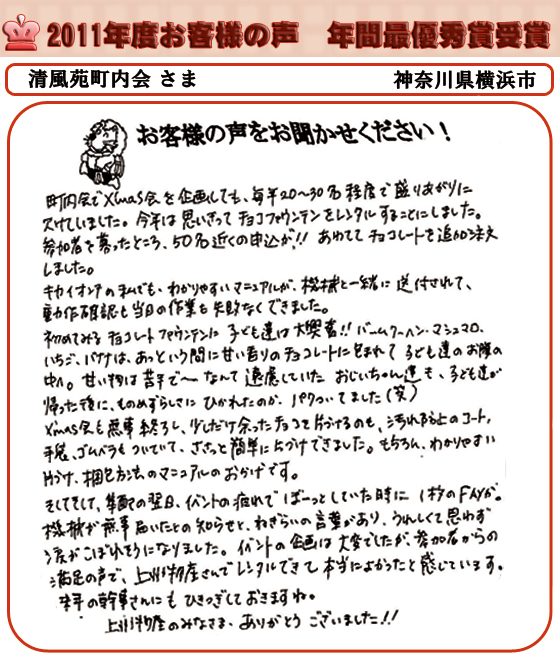 2011年度お客様の声 年間最優秀賞受賞
清風苑町内会 さま 神奈川県横浜市
お客様の声をお聞かせください！
町内会でXmas会を企画しても、毎年20〜30名程度で盛りあがりに
欠けていました。今年は思いきってチョコファウンテンをレンタルすることにしました。
参加者を募ったところ、50名近くの申込が!! あわててチョコレートを追加注文
しました。
キカイオンチの私でも、わかりやすいマニュアルが、機械と一緒に送付されて、
動作確認も当日の作業も失敗なくできました。
初めてみるチョコレートファウンテンに子ども達は大喫喜!! バームクーヘン・マシュマロ、
いちご、バナナは、あっという間に甘い香りのチョコレートに包まれて子ども達のお腹の
中へ。甘い物は苦手で〜なんて遠慮していたおじいちゃん達も、子ども達が
帰った後に、ものめずらしさにひかれたのか、パクついてました(笑)
Xmas会も無事終ろし、少しだけ余ったチョコで片づけるのも、汚れ防止のコート、
手袋、ゴムベラもついていて、ささっと簡単に片づけできました。もちろん、わかりやすい
片づけ、梱包方法のマニュアルのおかげです。
そしてそして、集配の翌日、イベントの疲れでぼーっとしていた時に1枚のFAXが。
機械が無事届いたとの知らせと、ねぎらいの言葉があり、うれしくて思わず
涙がこぼれそうになりました。イベントの企画は大変でしたが、参加者からの
満足の声で、上州物産さんでレンタルできて本当によかったと感じています。
来年の幹事さんにもひきつぎしておきますね。
上州物産のみなさま、ありがとうございました!!